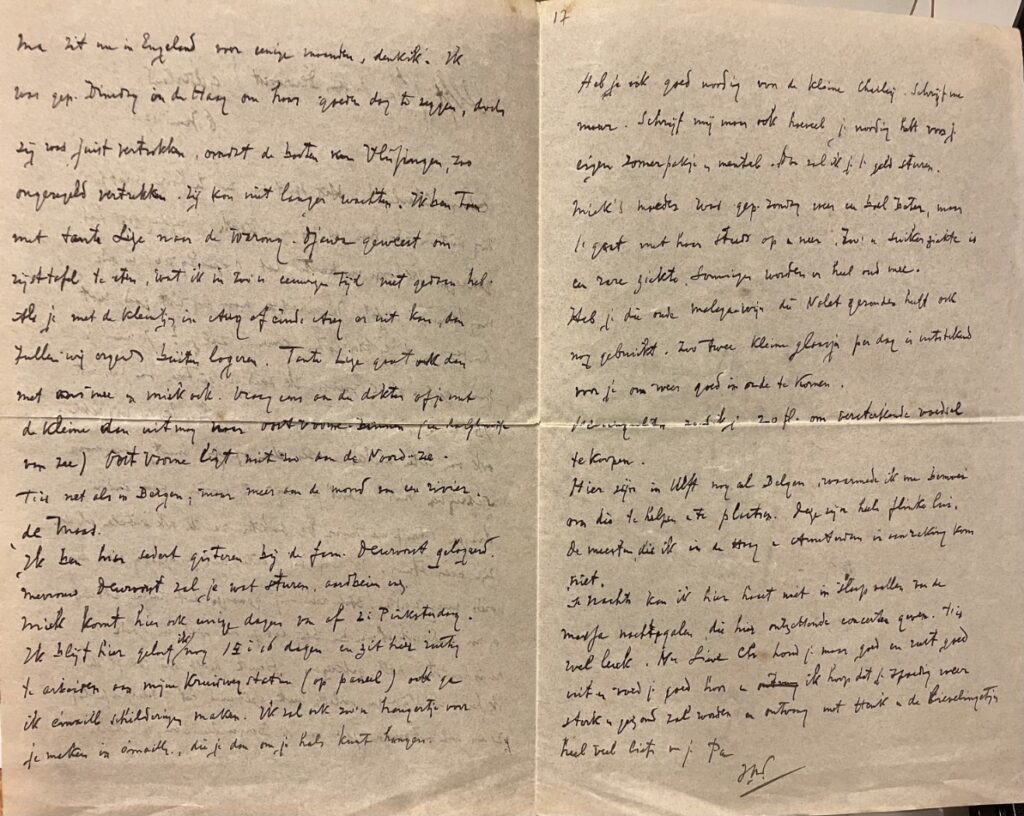 Ma zit nu in Engeland voor eenige maanden, denk ik. Ik
was gep. Dinsdag in den Haag om haar goeden dag te zeggen, doch
zij was juist vertrokken, omdat de booten van Vlissingen, zoo
ongeregeld vertrekken. Zij kon niet langer wachten. Ik ben Toen
met tante Lize naar de Waroeng Djawa geweest om
rijsttafel te eten, wat ik in zoo'n eeuwigen tijd niet gedaan heb.
Als je met de kleintjes in Aug of einde Aug er uit kan, dan
zullen wij ergens buiten logeren. Tante Lize gaat ook dan
met ons mee en Miek ook. Vraag eens aan de dokter of je met
de kleine dan uit mag naar Oost Voorne
van zee) Oost Voorne ligt niet zoo aan de Noord-zee.
't is net als in Bergen, maar meer aan de mond van een rivier.
de Maas.
Ik ben hier sedert gisteren bij de fam. Deurvorst gelogeerd.
Mevrouw Deurvorst zal je wat sturen, aardbeien enz.
Miek komt hier ook eenige dagen van af 2e Pinksterdag.
Ik blijf hier geloof ik nog 15 à 16 dagen en zit hier rustig
te arbeiden aan mijne Kruiswegstatien (op paneel) ook ga
ik émaille schilderingen maken. Ik zal ook zoo'n hangertje voor
je maken in émaille, die je dan om je hals kunt hangen.
17
Heb je ook goed noodig voor de kleine Charley. Schrijf me
maar. Schrijf mij maar ook hoeveel je noodig hebt voor je
eigen zomerpakje en mantel. Dan zal ik je 't geld sturen.
Miek's moeder was gep. zondag weer een boel beter, maar
't gaat met haar steeds op en neer. Zoo'n suikerziekte is
een rare ziekte. Sommigen worden er heel oud mee.
Heb je die oude malagawijn die Nolet gezonden heeft ook
nog gebruikt. Zoo twee kleine glaasjes per dag is uitstekend
voor je om weer goed in orde te komen.
20 fl. om versterkende voedsel
te koopen.
Hier zijn in Ulft nog al Belgen, waarmede ik me bemoei
om die te helpen en te plaatsen. Deze zijn heele flinke lui.
De meesten, die ik in den Haag en Amsterdam in aanraking kom
niet.
's Nachts kan ik hier haast niet in slaap vallen van de
massa nachtegalen die hier ontzettende concerten geven. 't is
wel leuk. Nu lieve Cha houd je maar goed en rust goed
uit en voed je goed hoor en ik hoop dat je spoedig weer
sterk en gezond zal worden en ontvang met Henk en de
heel veel liefs van je Pa